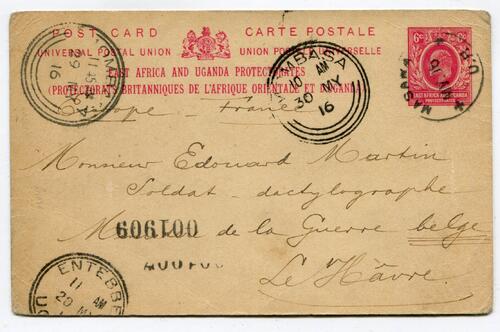 POST CARD CARTE POSTALE
UNIVERSAL POSTAL UNION UNION POSTALE UNIVERSELLE
EAST AFRICA AND UGANDA PROTECTORATES
(PROTECTORATS BRITANNIQUES DE L'AFRIQUE ORIENTALE ET OUGANDA)
6c 6c
EAST AFRICA AND UGANDA
PROTECTORATES
11 45 AM
29 MY
16
MOMBASA
10 AM
30 MY
16
Europe — France
Monsieur Edouard Martin
Soldat - dactylographe
Mi de la Guerre belge
Le Hâvre.
001909
ENTEBBE
11 AM
29 MY